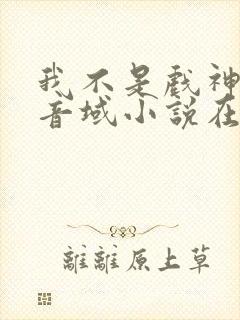 我不是戲神
音域小說在
離離原上草